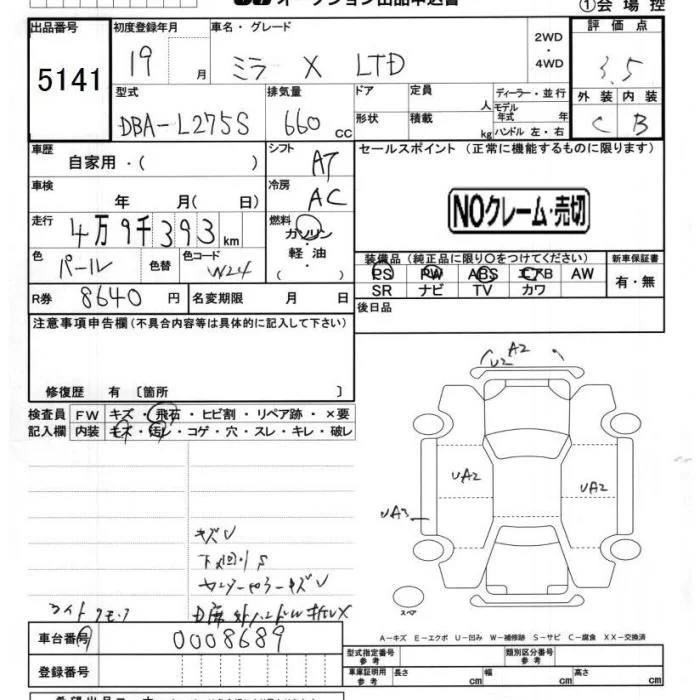 オークション出品申込書
①会場控
出品番号 初度登録年月 車名・グレード 2WD ・ 4WD 評価点
5141 19 月 ミラ X LTD 3.5
型式 排気量 ドア 定員 人 ディーラー・並行 外装 内装
DBA-L275S 660 cc 形状 積載 kg モデル年式 年 ハンドル 左・右 C B
車歴 自家用・( ) シフト AT セールスポイント (正常に機能するものに限ります)
車検 年 月( 日) 冷房 AC
NOクレーム・売切
走行 4万9千393km 燃料 ガソリン・軽油・( )
色 パール 色替 色コード W24
装備品 (純正品に限り〇をつけてください) 新車保証書
PS PW ABS エアB AW 有・無
SR ナビ TV カワ
R券 8640円 名変期限 月 日
後日品
注意事項申告欄(不具合内容等は具体的に記入して下さい)
修復歴 有 〔箇所 〕
検査員 FW キズ・飛石・ヒビ割・リペア跡・×要
記入欄 内装 キズ・汚レ・コゲ・穴・スレ・キレ・破レ
A2
U2
UA2
UA2
UA3
キズU
下回りS
スペア
A-キズ E-エクボ U-凹み W-補修跡 S-サビ C-腐食 XX-交換済
車台番号 0008689
登録番号
型式指定番号 参考 類別区分番号 参考
車庫証明用 参考 長さ cm 幅 cm 高さ cm